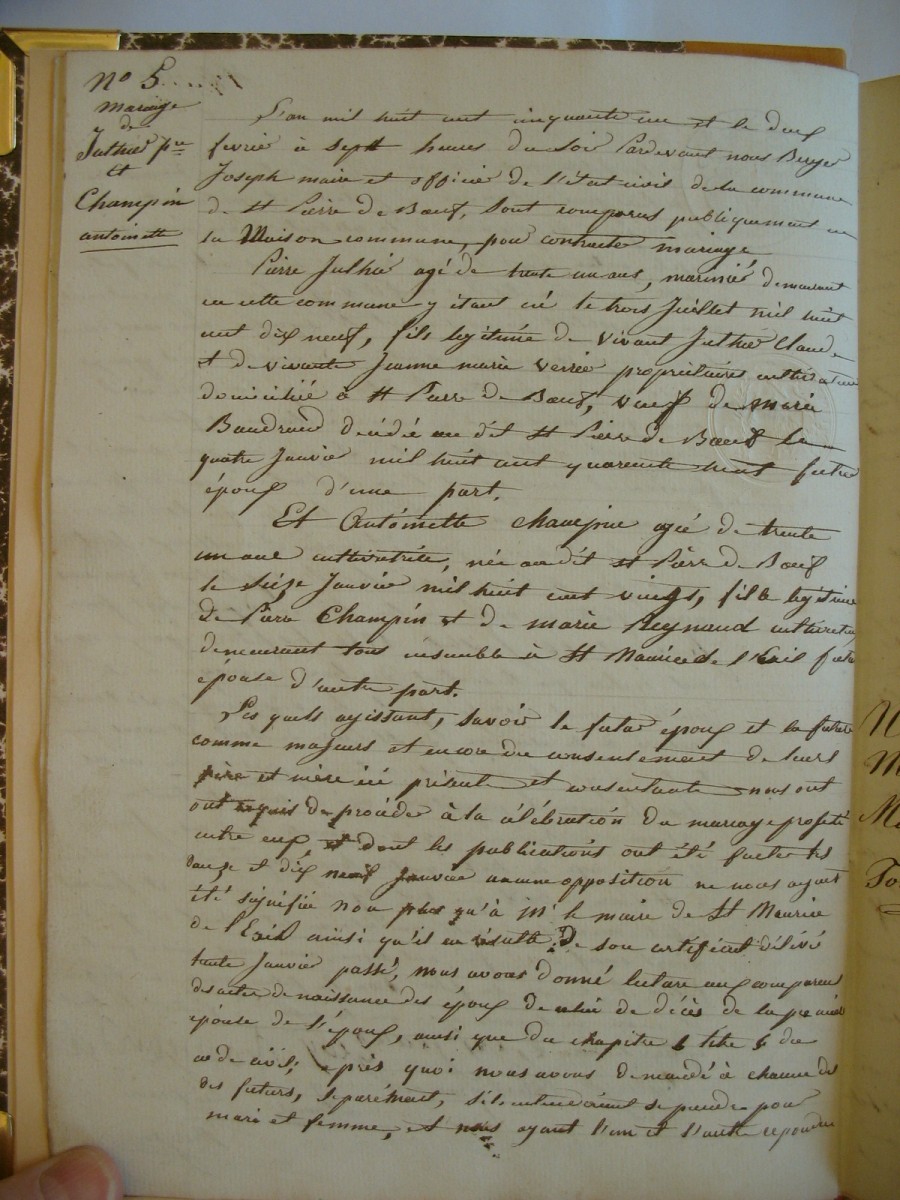 no 5
mariage
de
Juthier pre
et
Champin
antoinette
L'an mil huit cent cinquante un et le deux
fevrié à sept heures du Soir Pardevant nous Berger
Joseph maire et officié de l'état civil de la commune
de St Pierre de Bœuf, Sont comparus publiquement en
la Maison commune, pour contracté mariage
Pierre Juthié agé de trente un ans, marinié demeurant
en cette commune y étant né le trois Juillet mil huit
cent dix neuf, fils legitime de vivant Juthié Claude
et de vivante Jeanne marie verrié propriétaires cultivateurs
domicilié à St Pierre de Bœuf, veuf de marie
Baudrand décédée au dit St Pierre de Bœuf le
quatre Janvié mil huit cent quarente huit futur
époux d'une part.
Et Antoinette champin agée de trente
un ans cultivatrice, née au dit St Pierre de Bœuf
le Seize Janvié mil huit cent vingt, fille legitime
de Pierre Champin et de marie Reynaud cultivateurs
demeurant tous ensemble à St Maurice de l'Exil future
épouse d'autre part.
Les quels agissant, savoir le futur époux et la future
comme majeurs et encore du consentement de leurs
père et mère ici présents et consentants nous ont
ont requis de procéder à la célébration du mariage projeté
entre eux, et dont les publications ont été faites les
douze et dix neuf Janvié aucune opposition ne nous ayant
été signifiée non plus qu'à Mr le maire de St Maurice
de l'Exil ainsi qu'il en résulte de son certificat délivré
trente Janvié passé, nous avons donné lecture aux comparus
des actes de naissance des époux de celui de décès de la première
épouse de l'époux, ainsi que du chapitre 6 titre 5 du
code civil; après quoi nous avons demandé à chacun des
des futurs, séparément, s'ils entendaient se prendre pour
mari et femme, et nous ayant l'un et l'autre répondu